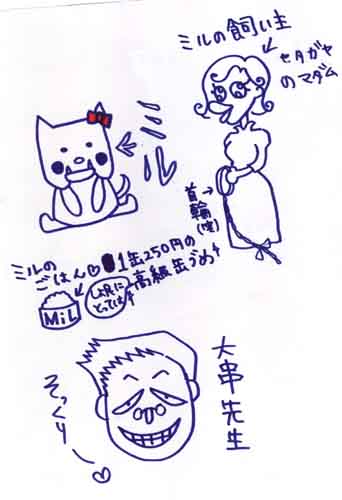 ミルの飼い主
セタガヤ
のマダム
ミル
首輪
ミルの
ごはん♡
1缶250円の
高級缶づめ
MiL
大串先生
そっくりー♡